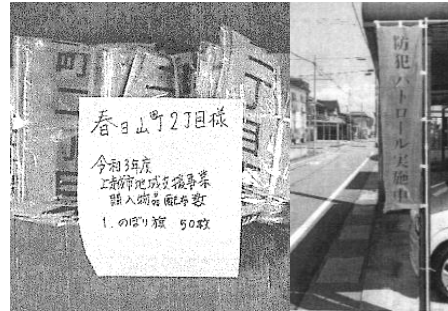 春日山町2丁目様
令和3年度
上越市地域支援事業
購入物品配布数
1. のぼり旗 50枚
防犯パトロール実施中